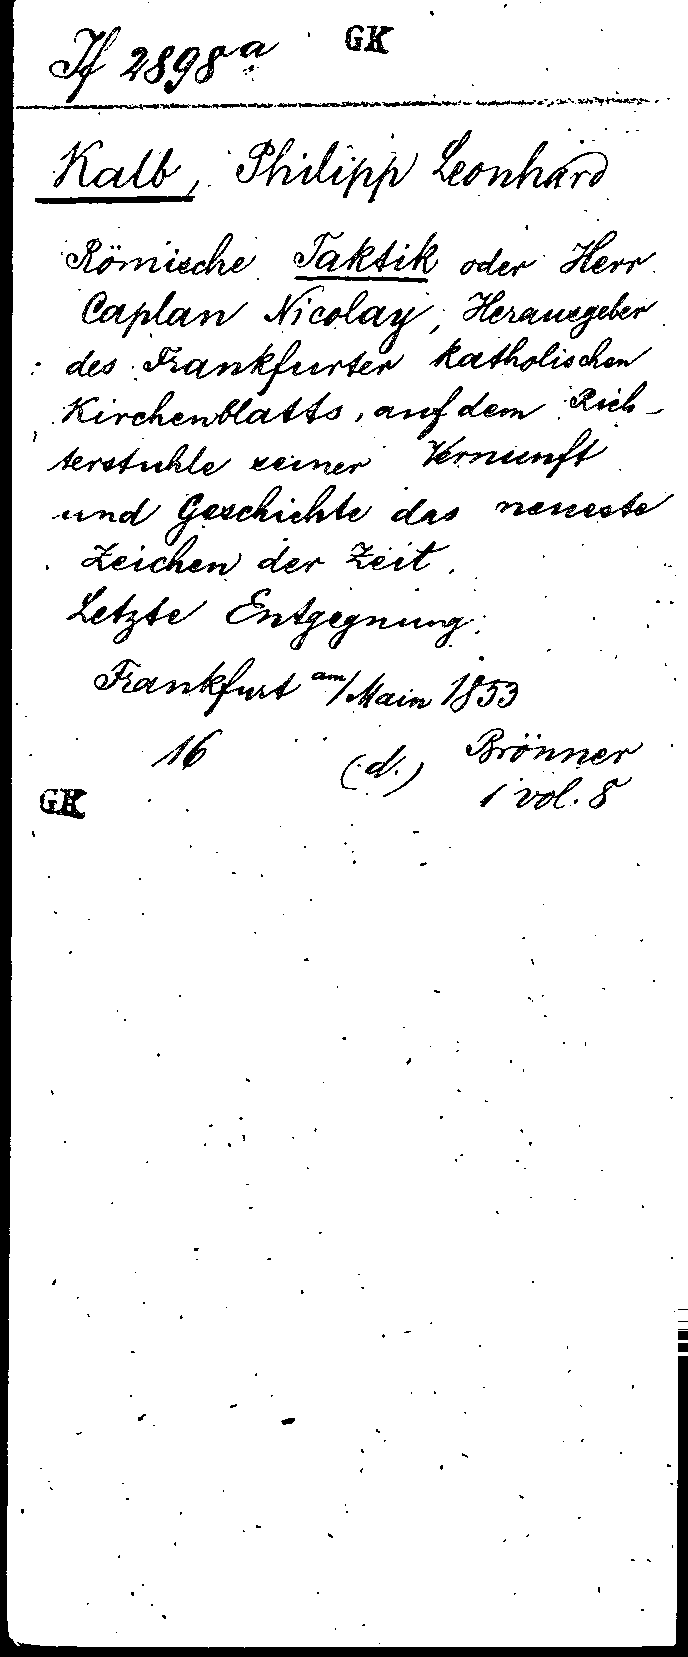 If 2898a GK
Kalb, Philipp Leonhard
Römische Taktik oder Herr
Caplan Nicolay, Herausgeber
des Frankfurter katholischen
Kirchenblatts, auf dem Rich-
terstuhle seiner Vernunft
und Geschichte das neueste
Zeichen der Zeit.
Letzte Entgegnung.
Frankfurt am/Main 1853
16 (d.) Brönner
1 vol. 8
GK